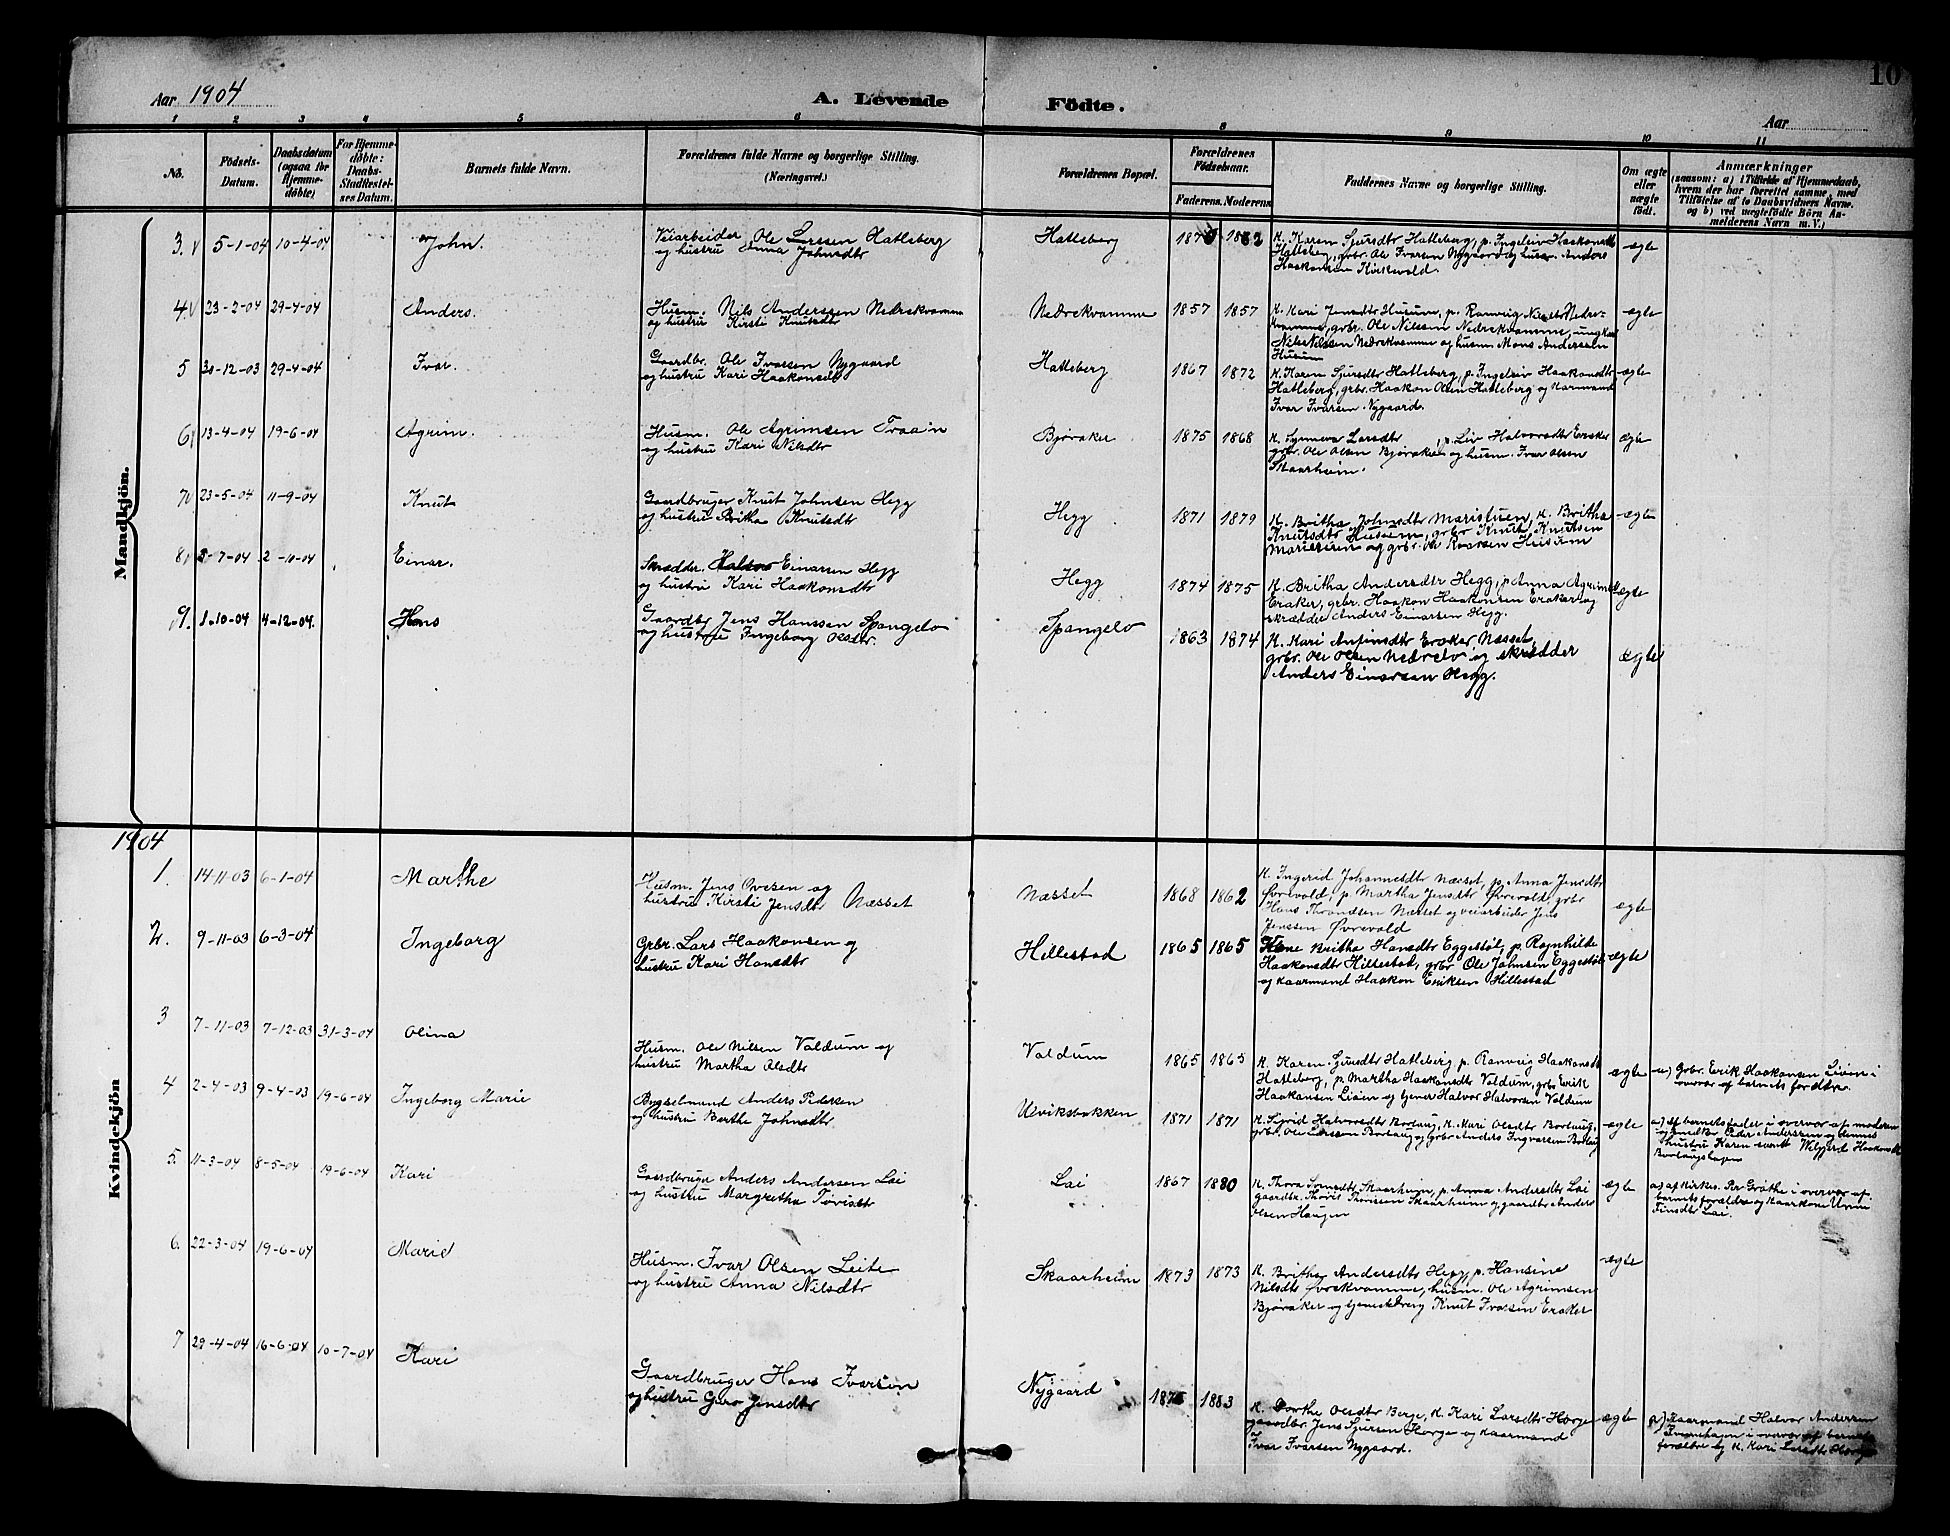 10
Aar 1904
A. Levende Födte.
Aar
1 2 3 4 5 6 8 9 10 11
No.
Födsels-Datum.
Daabsdatum (ogsaa for Hjemme-döbte)
For Hjemme-döbte: Daabs-Stadfæstel-ses Datum.
Barnets fulde Navn.
Forældrenes fulde Navne og borgerlige Stilling.
(Næringsvei.)
Forældrenes Bopæl.
Forældrenes Födselsaar.
Faderens. Moderens.
Faddernes Navne og borgerlige Stilling.
Om ægte eller uægte födt.
Anmærkninger
(saasom: a) i Tilfælde af Hjemmedaab,
hvem der har forrettet samme, med
Tilföielse af to Daabsvidners Navne.
og b) ved uægtefödte Börn An-
melderens Navn m. V.)
Mandkjön.
3. 5-1-04 10-4-04 John.
Veiarbeider Ole Larsen Hatleberg
og hustru Anna Johnsdtr
Hatleberg
K. Karen Sjursdtr Hatleberg, p. Ingeleiv Haakonsdtr
Hatleberg, grbr. Ole Ivarsen Nygaard og husm. Anders
Haakonsen Kirkevold.
ægte
4. 23-2-04 29-4-04 Anders.
Husm. Nils Anderssen Nedrekvamme
og hustru Kirsti Knutsdtr
Nedrekvamme 1857 1857
K. Kari Jensdtr Husum, p. Ranveig Nilsdtr Nedre-
kvamme, grbr. Ole Nilssen Nedrekvamme, ungkarl
Nils Nilssen Nedrekvamme og husm. Mons Anderssen
Husum
ægte
5 30-12-03 29-4-04 Ivar.
Gaardbr. Ole Ivarsen Nygaard
og hustru Kari Haakonsdtr
Hatleberg 1867 1872
K. Karen Sjursdtr Hatleberg, p. Ingeleiv Haakonsdtr
Hatleberg, grbr. Haakon Olsen Hatleberg og kaarmand
Ivar Ivarsen Nygaard.
ægte
6 13-4-04 19-6-04 Agrim.
Husm. Ole Agrimsen Traain
og hustru Kari Nilsdtr
Bjøraker 1875 1868
K. Synneva Larsdtr, p. Liv Halvorsdtr Eraker
grbr. Ole Olsen Bjøraker og husm. Ivar Olsen
Skaarheim.
ægte
7 23-5-04 11-9-04 Knut
Gaardbruger Knut Johnsen Hegg
og hustru Britha Knutsdtr
Hegg 1871 1879
K. Britha Johnsdtr Maristuen, K. Britha
Knutsdtr Husum, grbr Knut Knutsen
Maristuen og grbr. Ole Knutsen Husum
ægte
8 3-7-04 2-10-04 Einar.
Skrædder. Halvor Einarsen Hegg
og hustru Kari Haakonsdtr
Hegg 1874 1875
K. Britha Andersdtr Hegg, p. Anna Agrimsdtr
Eraker, grbr. Haakon Haakonsen Eraker og
skrædder Anders Einarsen Hegg.
ægte
9. 1-10-04 4-12-04. Hans
Gaardbr Jens Hanssen Spangelo
og hustru Ingeborg Olsdtr.
Spangelo 1863 1874
K. Kari Anfinsdtr Eraker Næsset,
grbr. Ole Olsen Nedrelo og skrædder
Anders Einarsen Hegg.
ægte
1904
Kvindekjön
1. 14-11-03 6-1-04 Marthe
Husm. Jens Ovesen og
hustru Kirsti Jensdtr Næsset
Næsset 1868 1862
K. Ingerid Johannesdtr Næsset, p. Anna Jensdtr
Øvrevold, p. Martha Jensdtr Øvrevold, grbr
Hans Throndsen Næsset og veiarbeider Jens
Jenssen Øvrevold
ægte
2. 9-11-03 6-3-04 Ingeborg
Grbr. Lars Haakonsen og
hustru Kari Hansdtr
Hillestad 1865 1865
Kone Britha Hansdtr Eggestøl, p. Ragnhilde
Haakonsdtr Hillestad, grbr Ole Johnsen Eggestøl
og kaarmand Haakon Eriksen Hillestad
ægte
3 7-11-03 7-12-03 31-3-04 Olina
Husm. Ole Nilsen Valdum og
hustru Martha Olsdtr
Valdum 1865 1865
K. Karen Sjursdtr Hatleberg p. Ranveig Haakonsdtr
Hatleberg, p. Martha Haakonsdtr Valdum, grbr Erik
Haakonsen Liaien og tjener Halvor Halvorsen Valdum
ægte
a) Grbr. Erik Haakonsen Liaien i
overvær af barnets forældre.
4 2-4-03 9-4-03 19-6-04 Ingeborg Marie
Bygselmand Anders Pedersen
og hustru Berthe Johnsdtr
Ulviksbakken 1871 1871
K. Sigrid Halvorsdtr Borlaug, K. Mari Olsdtr Borlaug,
grbr. Ole Larssen Borlaug og grbr Anders Ingvarssen Borlaug
ægte
a) af barnets fader i overvær af moderen
og Peder Anderssen og dennes
hustru Karen samt Haakonsdtr
Borlaugshagen
5. 11-3-04 8-5-04 19-6-04 Kari
Gaardbruger Anders Andersen Lai
og hustru Margretha Torisdtr
Lai 1867 1880
K. Thora Tomasdtr Skaarheim, p. Anna Andersdtr Lai
gaardbr. Thoris Thorissen Skaarheim og gaardbr Anders
Olsen Haugen
ægte
a) af kirkes. Per Grøthe i overvær af
barnets forældre og kaarkone Unni
Finsdtr Lai.
6. 22-3-04 19-6-04 Marie
Husm. Ivar Olsen Leite
og hustru Anna Nilsdtr
Skaarheim 1873 1873
K. Britha Andersdtr Hegg, p. Hansine
Nilsdtr Øvrekvamme, husm. Ole Agrimsen
Bjøraker og tjenestdreng Knut Ivarsen Eraker
ægte
7 29-4-04 16-6-04 10-7-04 Kari
Gaardbruger Hans Ivarsen
og hustru Guro Jensdtr
Nygaard 1883
K. Dorthe Olsdtr Berge, K. Kari Larsdtr Horge
gaardbr. Jens Sjursen Horge og kaarmand
Ivar Ivarsen Nygaard.
ægte
a) Kaarmand Halvor Andersen
i overvær af barnets
forældre og K. Kari Larsdtr Horge